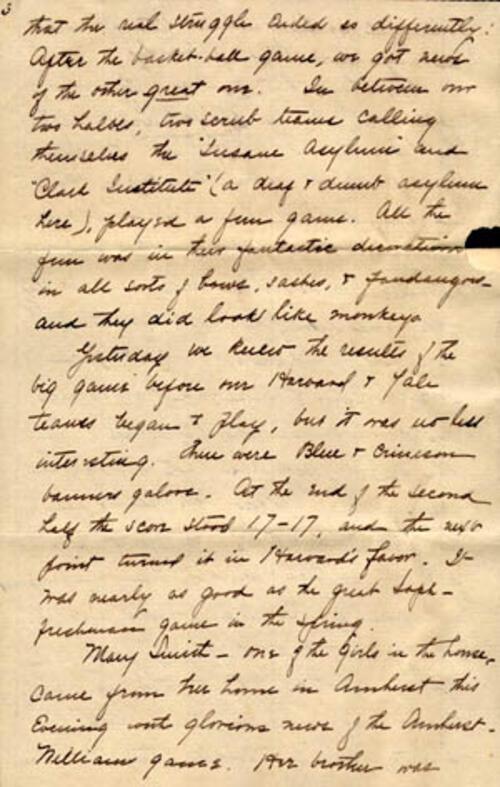 3
that the real struggle ended so differently.
After the basket-ball game, we got news
of the other great one. In between our
two halves, two scrub teams calling
themselves the "Insane Asylum" and
"Clark Institute" (a deaf & dumb asylum
here), played a fun game. All the
fun was in their fantastic decorations
in all sorts of bows, sashes, & fandangoes-
and they did look like monkeys
Yesterday we knew the results of the
big game before our Harvard & Yale
teams began to play, but it was no less
interesting. There were Blue & Crimson
banners galore. At the end of the second
half the score stood 17-17, and the next
point turned it in Harvard's favor. It
was nearly as good as the great Soph-
freshman game in the spring.
Mary - one of the girls in the house,
came from her home in Amherst this
Evening with glorious news of the Amherst-
William game. Her brother was